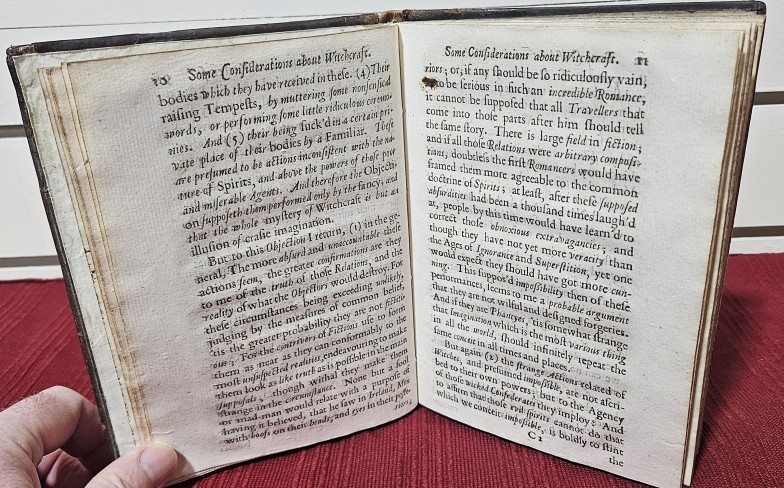 10 Some Considerations about Witchcraft.
bodies which they have received in these. (4) Their
raising Tempests, by muttering some nonsensical
words, or performing some little ridiculous ceremo-
nies. And (5) their being suck'd in a certain pri-
vate place of their bodies by a Familiar. These
are presumed to be actions inconsistent with the na-
ture of Spirits, and above the powers of these poor
and miserable Agents. And therefore the Objecti-
on supposeth them performed only by the fancy; and
that the whole mystery of Witchcraft is but an
illusion of crasie imagination.
But to this Objection I return, (1) in the ge-
neral, The more absurd and unaccountable these
actions seem, the greater confirmations are they
to me of the truth of those Relations, and the
reality of what the Objectors would destroy. For
these circumstances being exceeding unlikely,
judging by the measures of common belief,
'tis the greater probability they are not fictiti-
ous: For the contrivers of Fictions use to form
them as near as they can conformably to the
most unsuspected realities, endeavouring to make
them look as like truth as is possible in the main
supposals, though withal they make them
strange in the circumstance. None but a fool
or mad-man would relate with a purpose of
having it believed, that he saw in Ireland, Men
with hoofs on their heads, and eyes in their poste-
riors;
Some Considerations about Witchcraft. 11
riors; or, if any should be so ridiculously vain,
to be serious in such an incredible Romance,
it cannot be supposed that all Travellers that
come into those parts after him should tell
the same story. There is large field in fiction;
and if all those Relations were arbitrary composi-
tions, doubtless the first Romancers would have
framed them more agreeable to the common
doctrine of Spirits; at least, after these supposed
absurdities had been a thousand times laugh'd
at, people by this time would have learn'd to
correct those obnoxious extravagancies; and
though they have not yet more veracity than
the Ages of Ignorance and Superstition, yet one
would expect they should have got more cun-
ning. This suppos'd impossibility then of these
performances, seems to me a probable argument
that they are not wilful and designed forgeries.
And if they are Phansyes, 'tis somewhat strange
that Imagination which is the most various thing
in all the world, should infinitely repeat the
same conceit in all times and places.
But again (2) the strange Actions related of
Witches, and presumed impossible, are not ascri-
bed to their own powers; but to the Agency
of those wicked Confederates they imploy: And
to affirm that those evil spirits cannot do that
which we conceit impossible, is boldly to stint
C 2
the